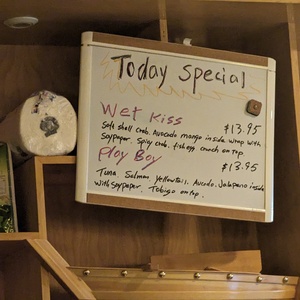 Today Special
Wet Kiss
$13.95
Soft shell crab. Avocado mango inside wrap with
Soypaper. Spicy crab. fish egg crunch on top.
Play Boy
$13.95
Tuna. Salmon. Yellowtail. Avocado. Jalapeno inside
with soypaper. Tobigo on top.